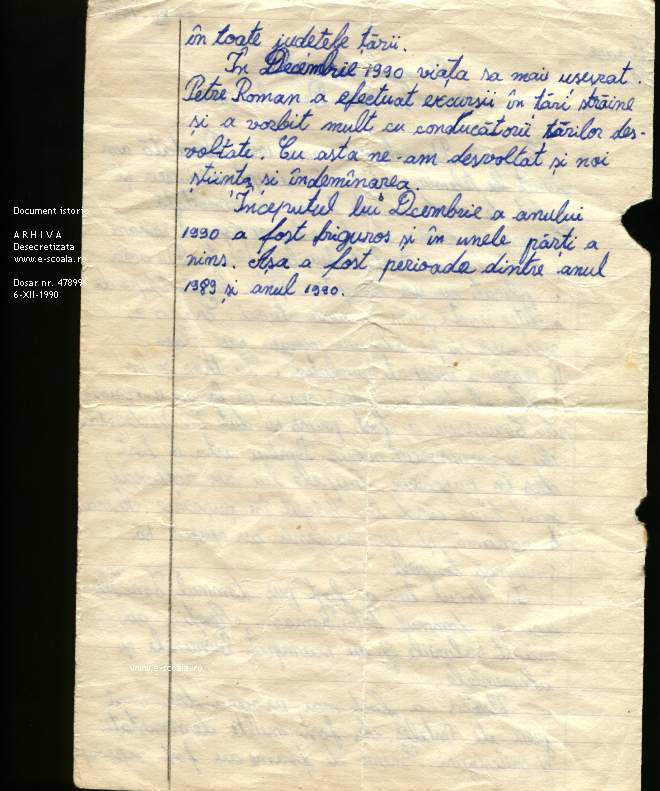 în toate județele țării.
În Decembrie 1990 viața sa mai usevrat.
Petre Roman a efectuat excursii în țări străine
și a vorbit mult cu conducătorii țărilor des-
voltate. Cu asta ne-am desvoltat și noi
știința și îndemînarea.
Începutul lui Dcembrie a anului
1990 a fost friguros și în unele părți a
nins. Așa a fost perioada dintre anul
1989 și anul 1990.
Document istoric
ARHIVA
Desecretizata
www.e-scoala.ro
Dosar nr. 47899
6-XII-1990
www.e-scoala.ro